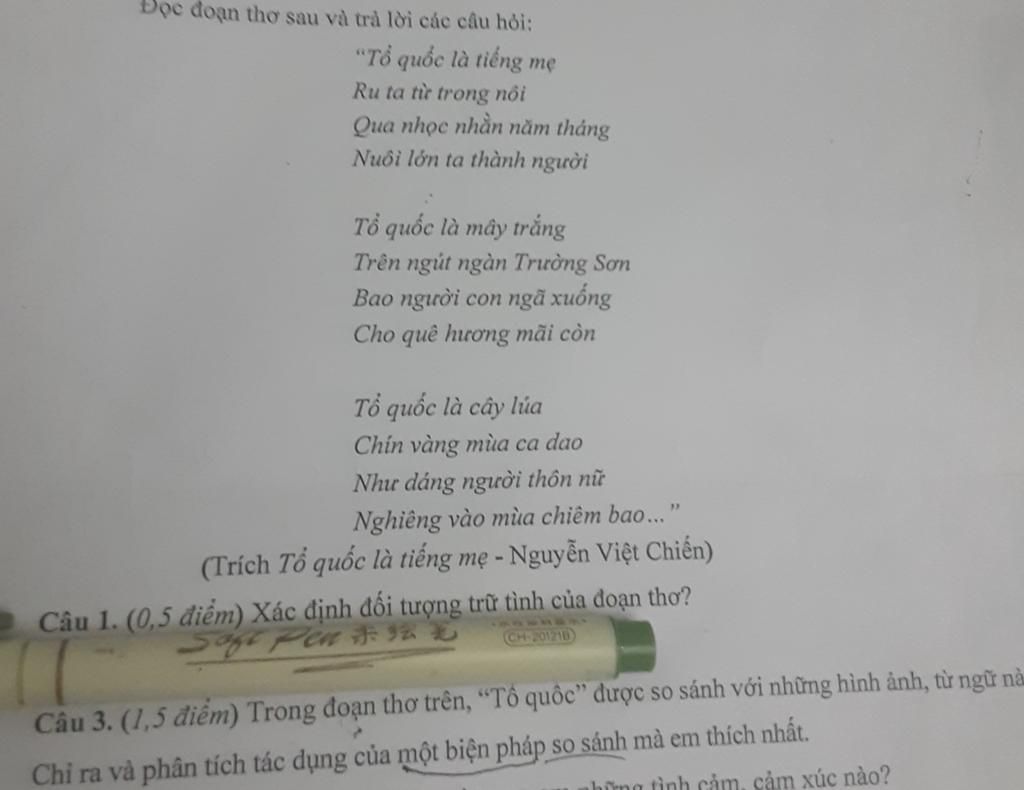 Đọc đoạn thơ sau và trả lời các câu hỏi:
“Tổ quốc là tiếng mẹ
Ru ta từ trong nôi
Qua nhọc nhằn năm tháng
Nuôi lớn ta thành người
Tổ quốc là mây trắng
Trên ngút ngàn Trường Sơn
Bao người con ngã xuống
Cho quê hương mãi còn
Tổ quốc là cây lúa
Chín vàng mùa ca dao
Như dáng người thôn nữ
Nghiêng vào mùa chiêm bao...”
(Trích Tổ quốc là tiếng mẹ - Nguyễn Việt Chiến)
Câu 1. (0,5 điểm) Xác định đối tượng trữ tình của đoạn thơ?
Soft Pen
CH-20121B
Câu 3. (1,5 điểm) Trong đoạn thơ trên, “Tổ quốc” được so sánh với những hình ảnh, từ ngữ
Chỉ ra và phân tích tác dụng của một biện pháp so sánh mà em thích nhất.
những tình cảm, cảm xúc nào?